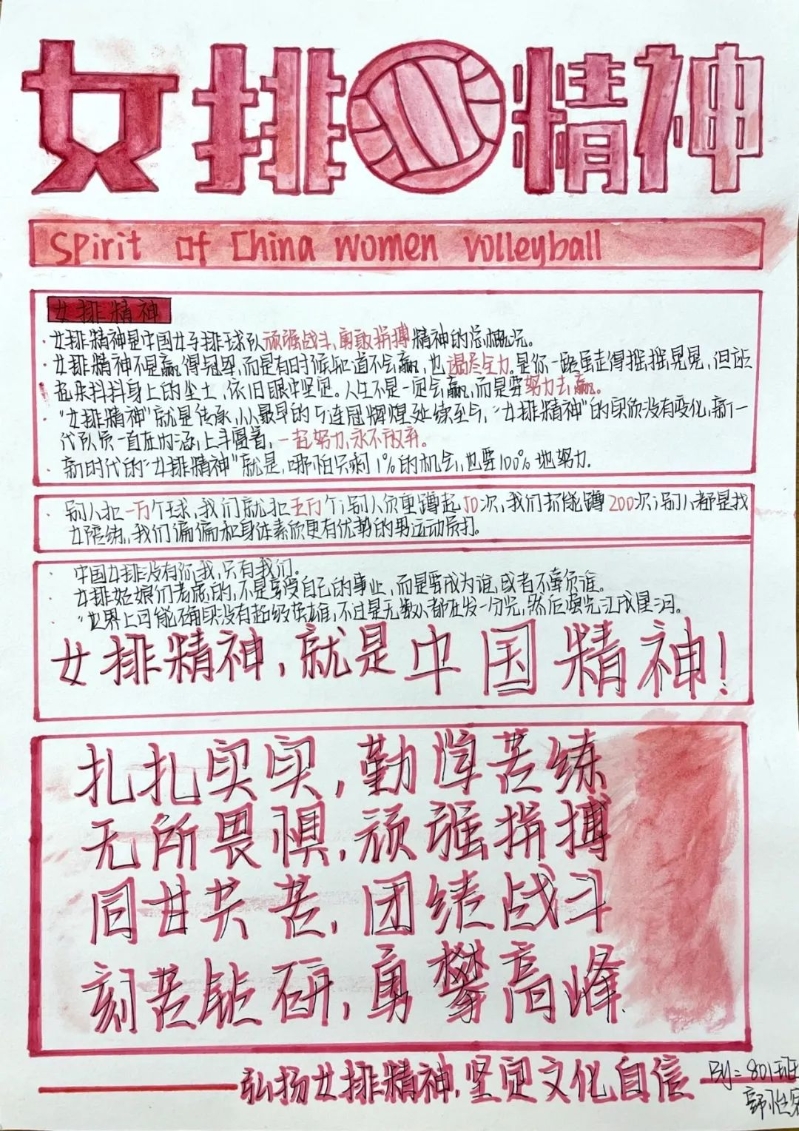 女排精神
Spirit of China women volleyball
女排精神
·女排精神是中国女子排球队顽强战斗、勇敢拼搏精神的总概况。
·女排精神不是赢得冠军,而是有时候知道不会赢,也竭尽全力。是你一路虽走得摇摇晃晃,但站
起来抖抖身上的尘土,依旧眼中坚定。人生不是一定会赢,而是要努力去赢。
·"女排精神"就是传承,从最早的5连冠辉煌延续至今,"女排精神"的实质没有变化,新一
代队员一直在内涵上丰富着,一起努力,永不放弃。
·新时代的"女排精神"就是,哪怕只剩1%的机会,也要100%地努力。
·别人扣一万个球,我们就扣五万个;别人负重蹲起50次,我们都能蹲200次;别人都是找
女陪练,我们偏偏和身体素质更有优势的男运动员打。
·中国女排没有你,我,只有我们。
·女排姑娘们考虑的,不是享受自己的事业,而是要成为谁,或者不辜负谁。
·"世界上可能确实没有超级英雄,不过是无数人都在发一分光,然后萤光汇成星河。
女排精神,就是中国精神!
扎扎实实,勤学苦练
无所畏惧,顽强拼搏
同甘共苦,团结战斗
刻苦钻研,勇攀高峰
弘扬女排精神,坚定文化自信
By:801班